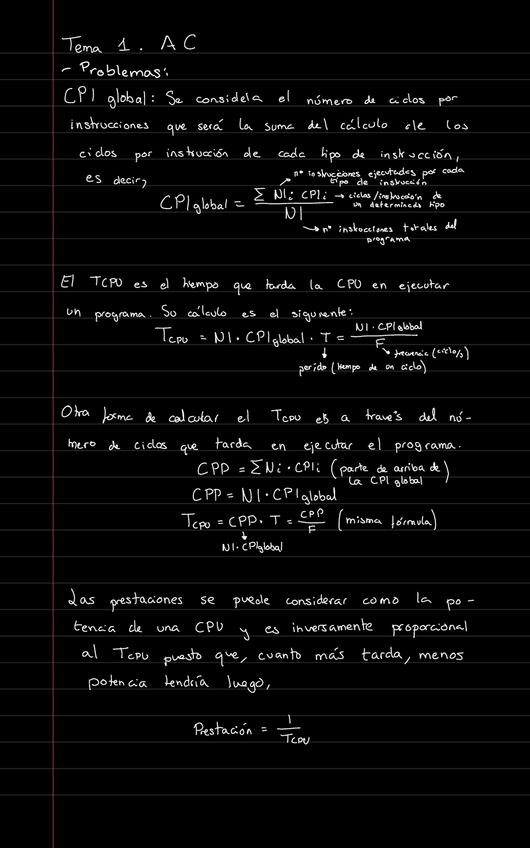 Tema 1. AC
- Problemas:
CPI global: Se considera el número de ciclos por
instrucciones que será la suma del cálculo de los
ciclos por instrucción de cada tipo de instrucción,
es decir,
nº instrucciones ejecutadas por cada
tipo de instrucción
CPI global = Σ NIi CPIi / NI
→ ciclos/instrucción de
un determinado tipo
→ nº instrucciones totales del
programa
El TCPU es el tiempo que tarda la CPU en ejecutar
un programa. Su cálculo es el siguiente:
TCPU = NI · CPIglobal · T = NI · CPIglobal / F
frecuencia (ciclo/s)
perido (tiempo de un ciclo)
Otra forma de calcular el TCPU es a través del nú-
mero de ciclos que tarda en ejecutar el programa.
CPP = ΣNi · CPIi (parte de arriba de
la CPI global)
CPP = NI · CPIglobal
TCPU = CPP · T = CPP / F (misma fórmula)
NI · CPIglobal
Las prestaciones se puede considerar como la po-
tencia de una CPU y es inversamente proporcional
al TCPU puesto que, cuanto más tarda, menos
potencia tendría luego,
Prestación = 1 / TCPU